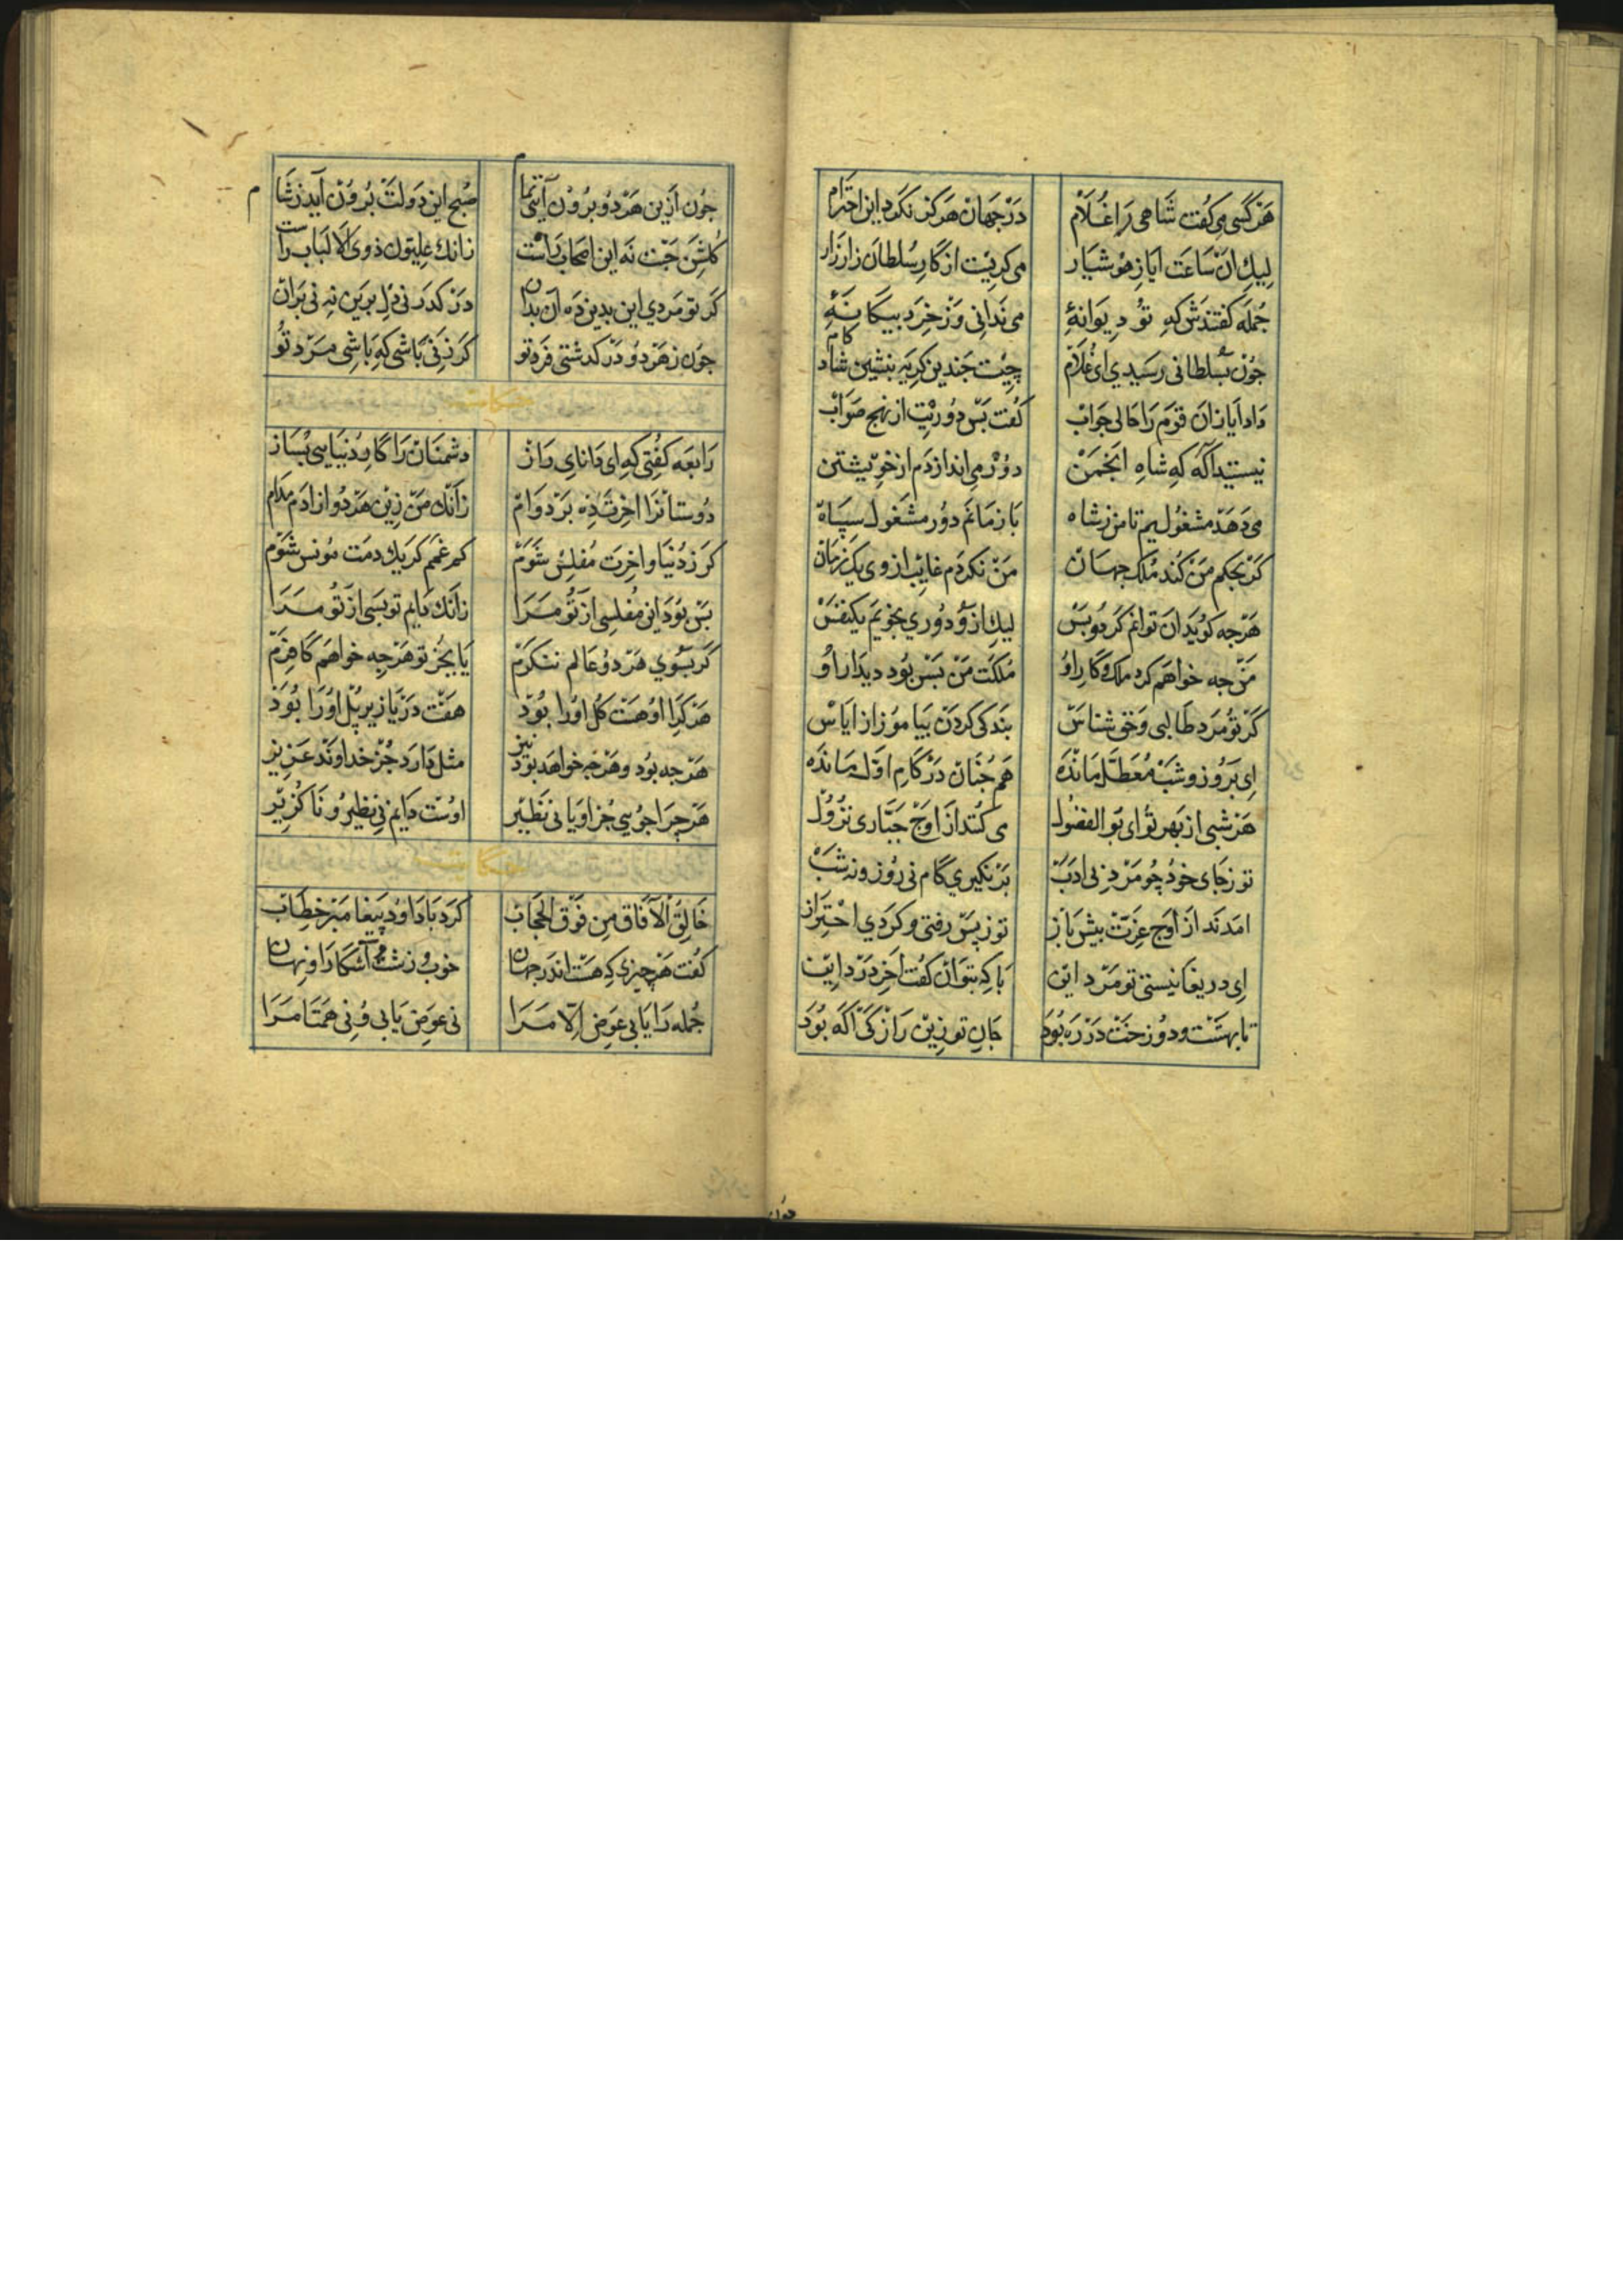 هر کسی می کفت شاهی را غلام در جهان هرکز نکرد این احترام
لیک ان ساعت ایاز هوشیار می کریست از کار سلطان زار زار
جمله کفتندش که تو دیوانهٔ می ندانی وز خرد بیکانهٔ
جون بسلطانی رسیدی ای غلام چیست جندین کریه بنشین شاد کام
داد ایاز ان قوم را حالی جواب کفت بس دوریت از نهج صواب
نیستید آکه که شاه انجمن دور می اندازدم از خویشتن
می دهد مشغولیم تا من ز شاه باز مانم دور مشغول سپاه
کر بحکم من کند ملک جهان من نکردم غایب از وی یک زمان
هرجه کوید ان توانم کرد و بس لیک ازو دوری نجویم یکنفس
من جه خواهم کرد ملک و کار او ملکت من بس بود دیدار او
کر تو مرد طالبی و حق شناس بندکی کردن بیاموز از ایاس
ای بروز و شب معطل مانده هم جنان در کام اول مانده
هر شبی از بهر تو ای بوالفضول می کنند از اوج جباری نزول
تو ز جای خود چو مرد بی ادب بر نکیری کام نی روز و نه شب
امدند از اوج عزت پیش باز تو ز پس رفتی و کردی احتراز
ای دریغا نیستی تو مرد این با که بتوان کفت آخر درد این
تا بهشت و دوزخت در ره بود جان تو زین راز کی آکه بود
جون ازین هر دو برون آیی تمام صبح این دولت برون آید ز شام
کلشن جنت نه این اصحاب راست زانک علیون ذوی الالباب راست
کر تو مردی این بدین ده ان بدان در کذر نی دل برین نه نی بران
جون ز هر دو در کذشتی فرد تو کر زنی باشی که باشی مرد تو
حکایت
رابعه کفتی که ای دانای راز دشمنان را کار دنیایی بساز
دوستانرا اخرت ده بر دوام زانک من زین هر دو ازادم مدام
کر ز دنیا و اخرت مفلس شوم کم غمم کر یک دمت مونس شوم
بس بود این مفلسی از تو مرا زانک دایم تو بسی از تو مرا
کر بسوی هر دو عالم ننکرم یا بجز تو هرجه خواهم کافرم
هر کرا او هست کل او را بود هفت دریا زیر پل او را بود
هرجه بود و هرجه خواهد بود نیز مثل دارد جز خداوند عزیز
هرچرا جویی جز او یابی نظیر اوست دایم بی نظیر و ناکزیر
خالق الآفاق من فوق الحجاب کرد با داود پیغامبر خطاب
کفت هر چیزی که هست اندر جهان خوب و زشت و آشکارا و نهان
جمله را یابی عوض الا مرا نی عوض یابی و نی همتا مرا